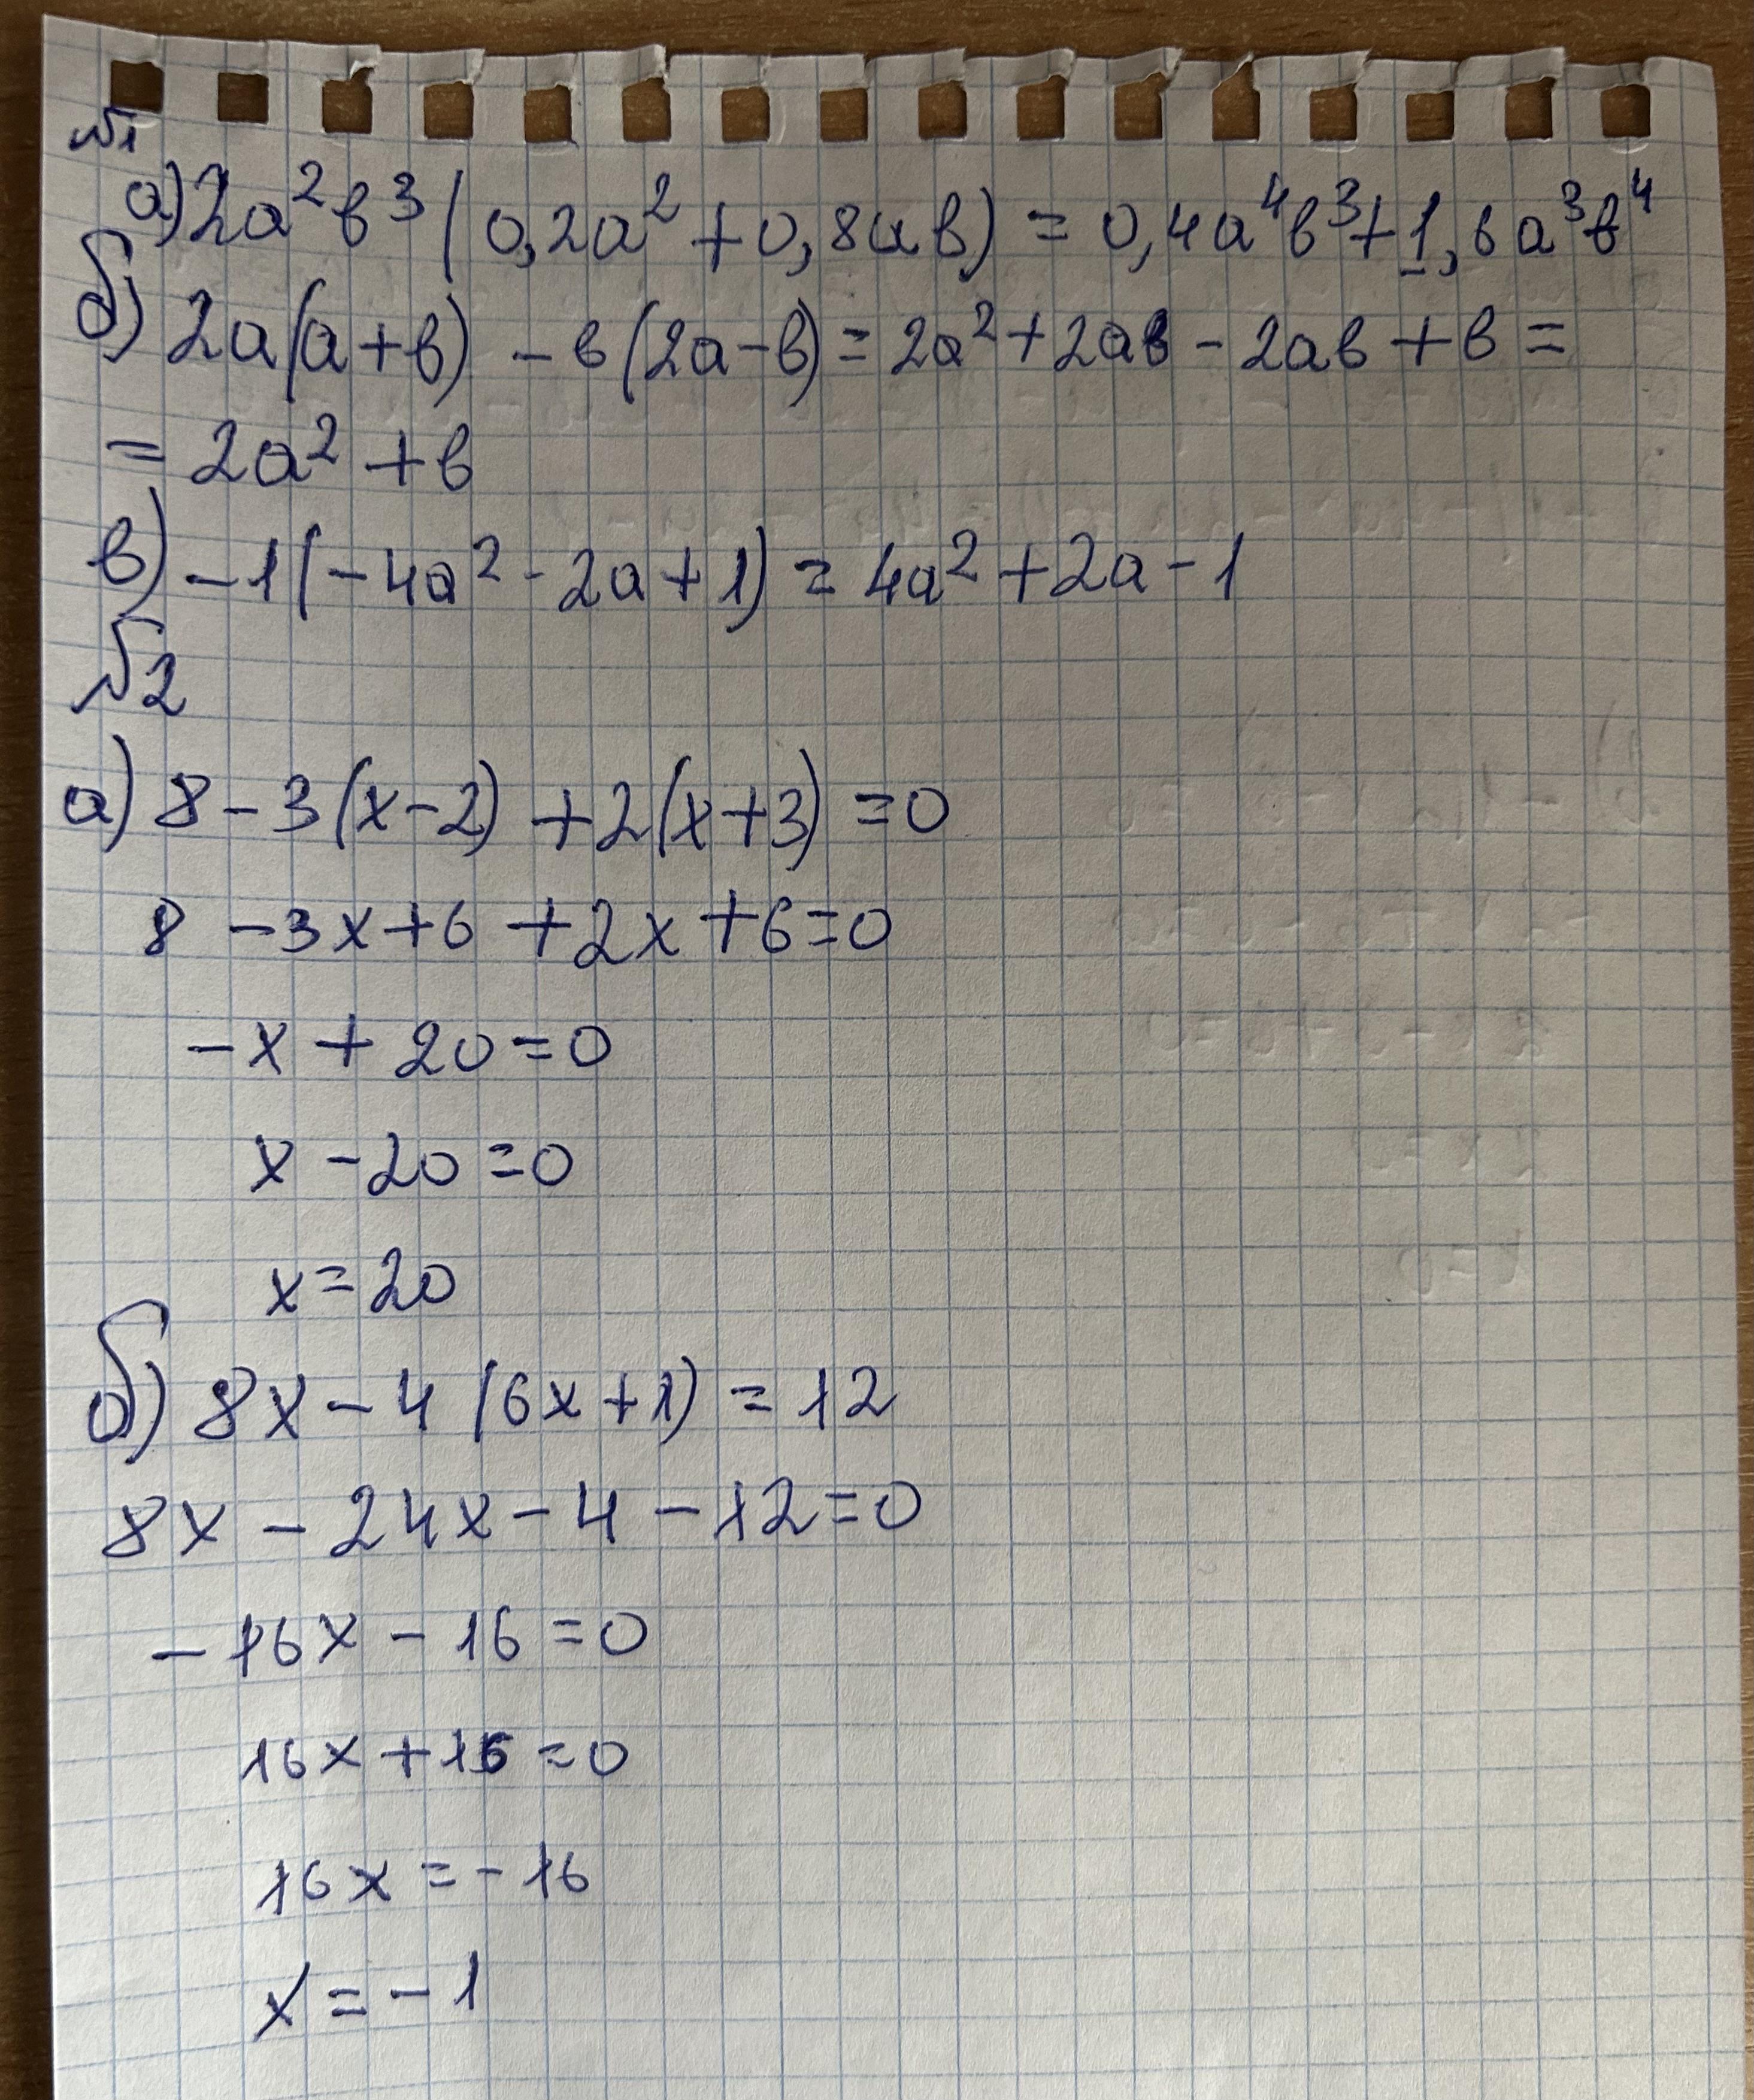 №1
а) 2a²b³(0,2a² + 0,8ab) = 0,4a⁴b³ + 1,6a³b⁴
б) 2a(a+b) - b(2a-b) = 2a² + 2ab - 2ab + b =
= 2a² + b
в) -1(-4a² - 2a + 1) = 4a² + 2a - 1
№2
а) 8 - 3(x-2) + 2(x+3) = 0
8 - 3x + 6 + 2x + 6 = 0
-x + 20 = 0
x - 20 = 0
x = 20
б) 8x - 4(6x+1) = 12
8x - 24x - 4 - 12 = 0
-16x - 16 = 0
16x + 16 = 0
16x = -16
x = -1